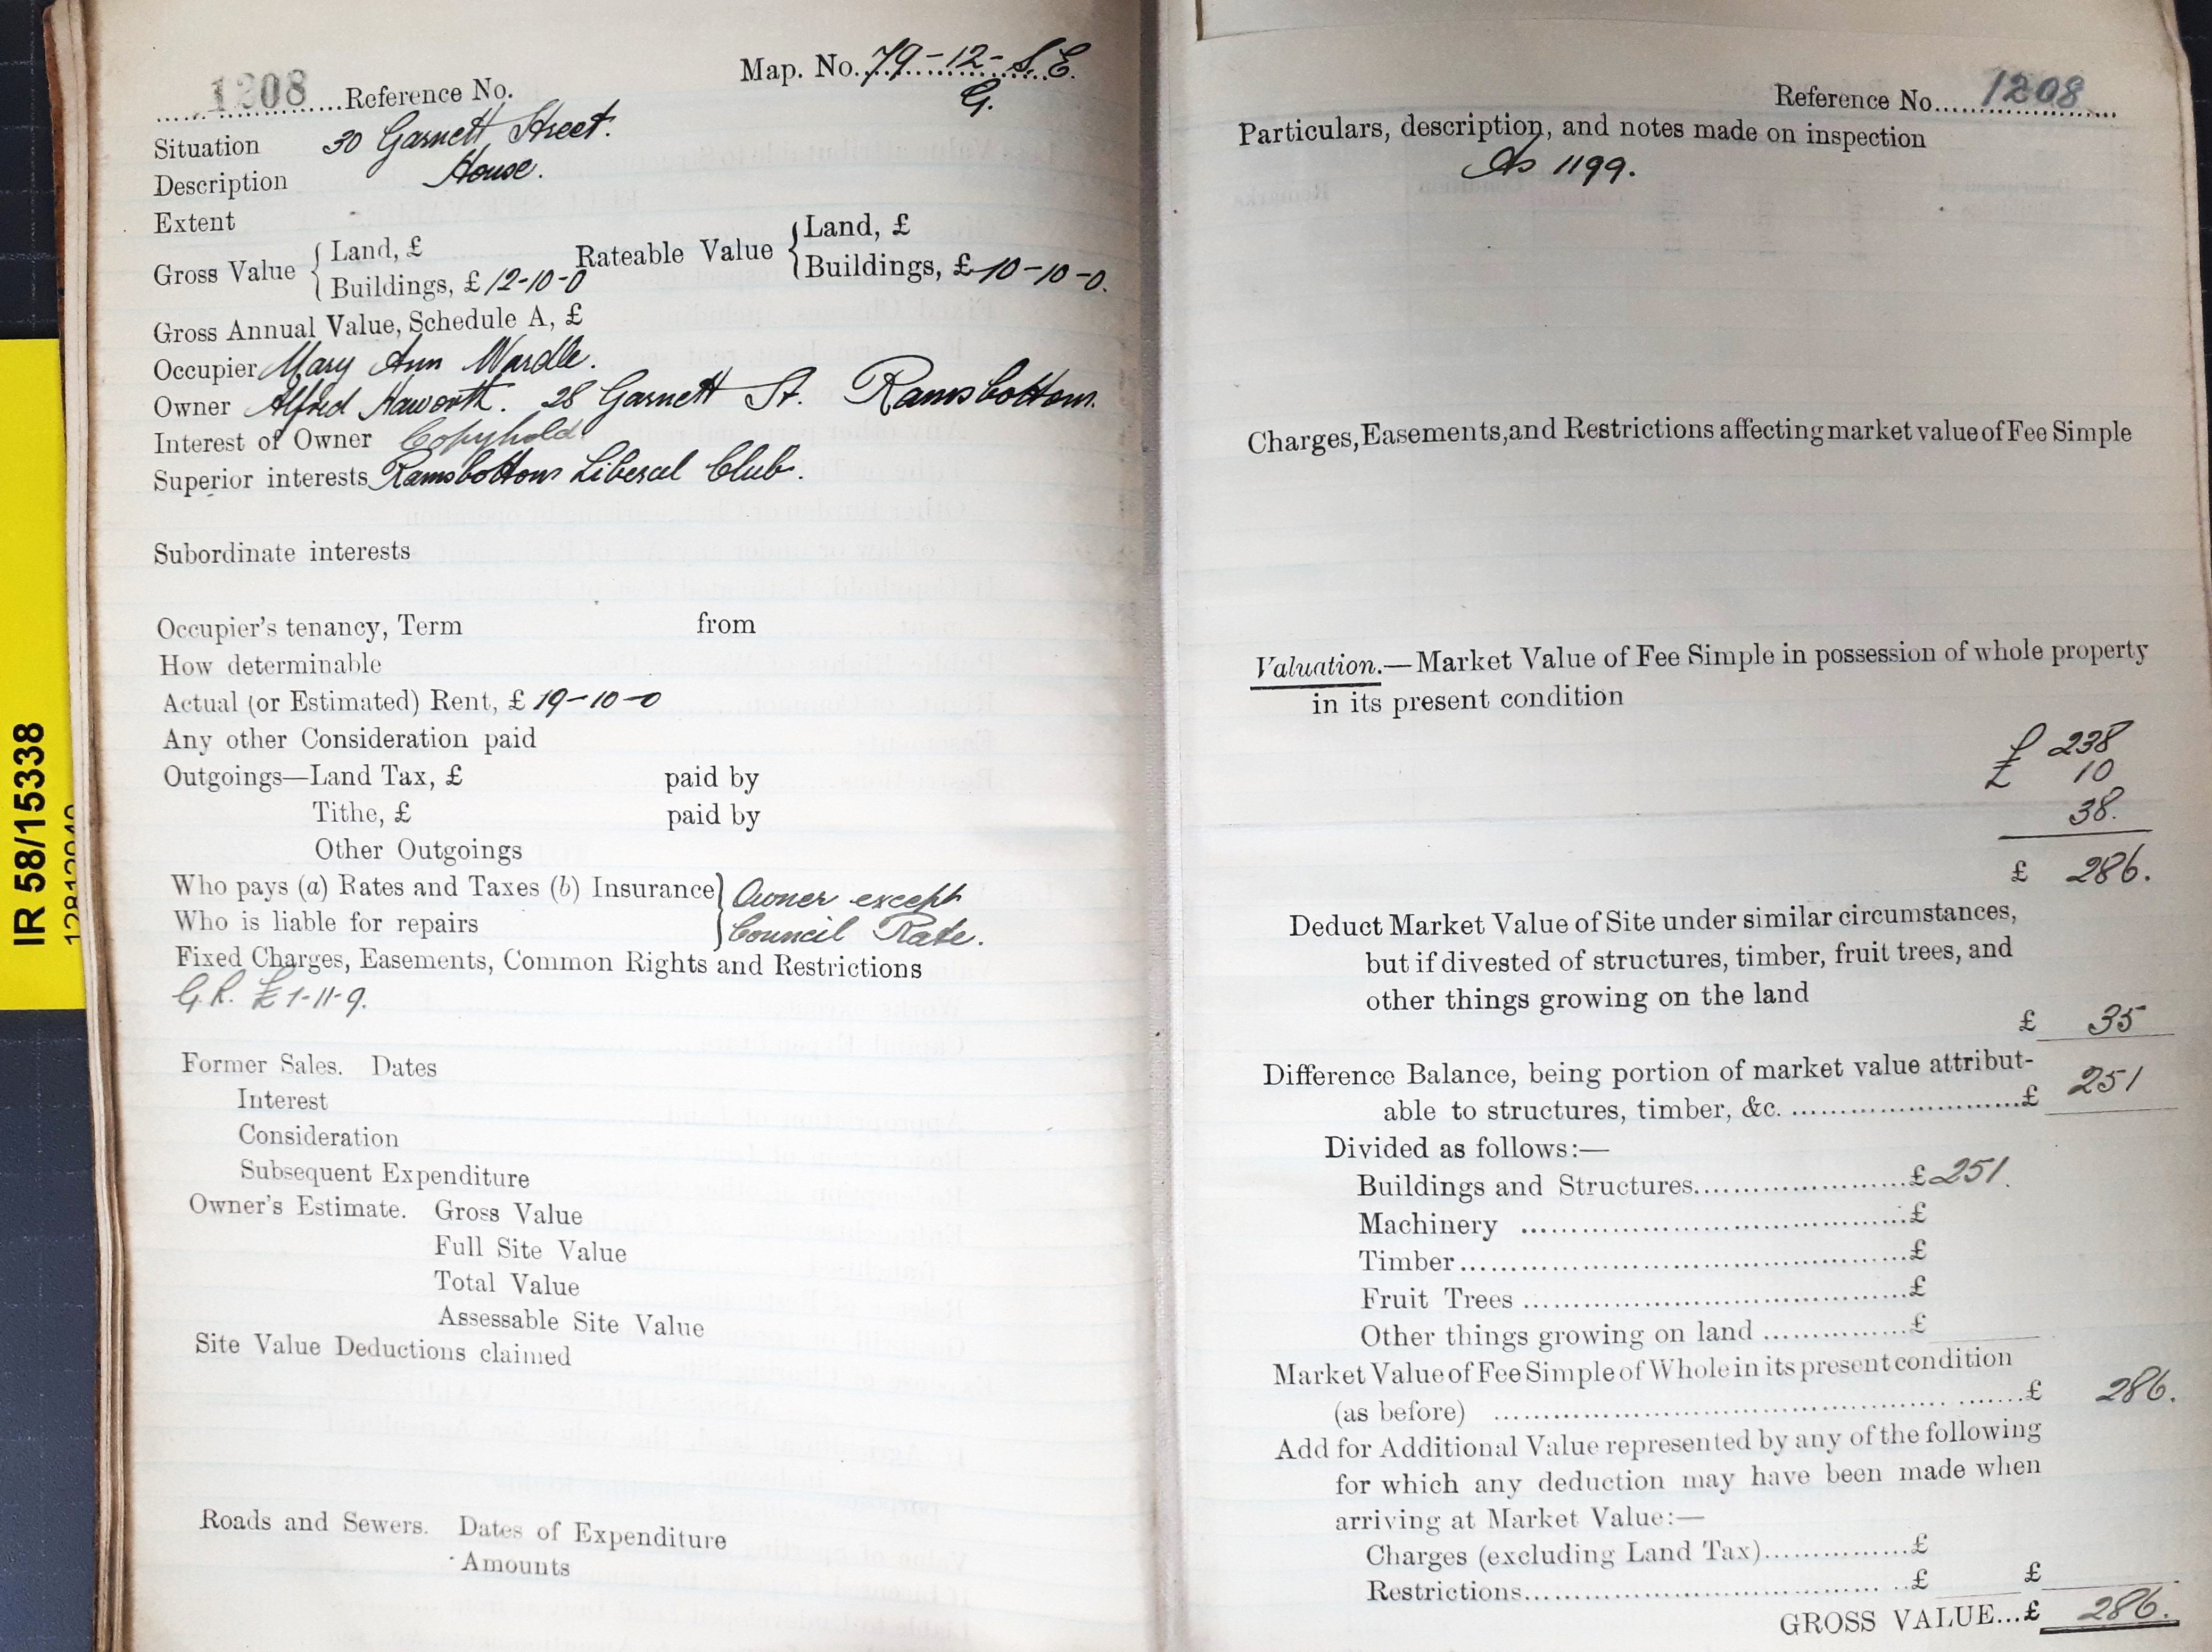 IR 58/15338
1208 Reference No. Map. No. 79-12-S.E.
G.
Situation 30 Garnett Street.
Description House.
Extent
Gross Value { Land, £ Rateable Value { Land, £
Buildings, £ 12-10-0 Buildings, £ 10-10-0.
Gross Annual Value, Schedule A, £
Occupier Mary Ann Wardle.
Owner Alfred Haworth. 28 Garnett St. Ramsbottom.
Interest of Owner Copyhold.
Superior interests Ramsbottom Liberal Club.
Subordinate interests
Occupier's tenancy, Term from
How determinable
Actual (or Estimated) Rent, £ 19-10-0
Any other Consideration paid
Outgoings—Land Tax, £ paid by
Tithe, £ paid by
Other Outgoings
Who pays (a) Rates and Taxes (b) Insurance } Owner except
Who is liable for repairs } Council Rate.
Fixed Charges, Easements, Common Rights and Restrictions
G.R. £1-11-9.
Former Sales. Dates
Interest
Consideration
Subsequent Expenditure
Owner's Estimate. Gross Value
Full Site Value
Total Value
Assessable Site Value
Site Value Deductions claimed
Roads and Sewers. Dates of Expenditure
Amounts
Reference No. 1208
Particulars, description, and notes made on inspection
As 1199.
Charges, Easements, and Restrictions affecting market value of Fee Simple
Valuation.—Market Value of Fee Simple in possession of whole property
in its present condition
£ 238
£ 10
38.
£ 286.
Deduct Market Value of Site under similar circumstances,
but if divested of structures, timber, fruit trees, and
other things growing on the land
£ 35
Difference Balance, being portion of market value attribut-
able to structures, timber, &c. £ 251
Divided as follows:—
Buildings and Structures £ 251.
Machinery £
Timber £
Fruit Trees £
Other things growing on land £
Market Value of Fee Simple of Whole in its present condition
(as before) £ 286.
Add for Additional Value represented by any of the following
for which any deduction may have been made when
arriving at Market Value:—
Charges (excluding Land Tax) £
Restrictions £ £
GROSS VALUE...£ 286.